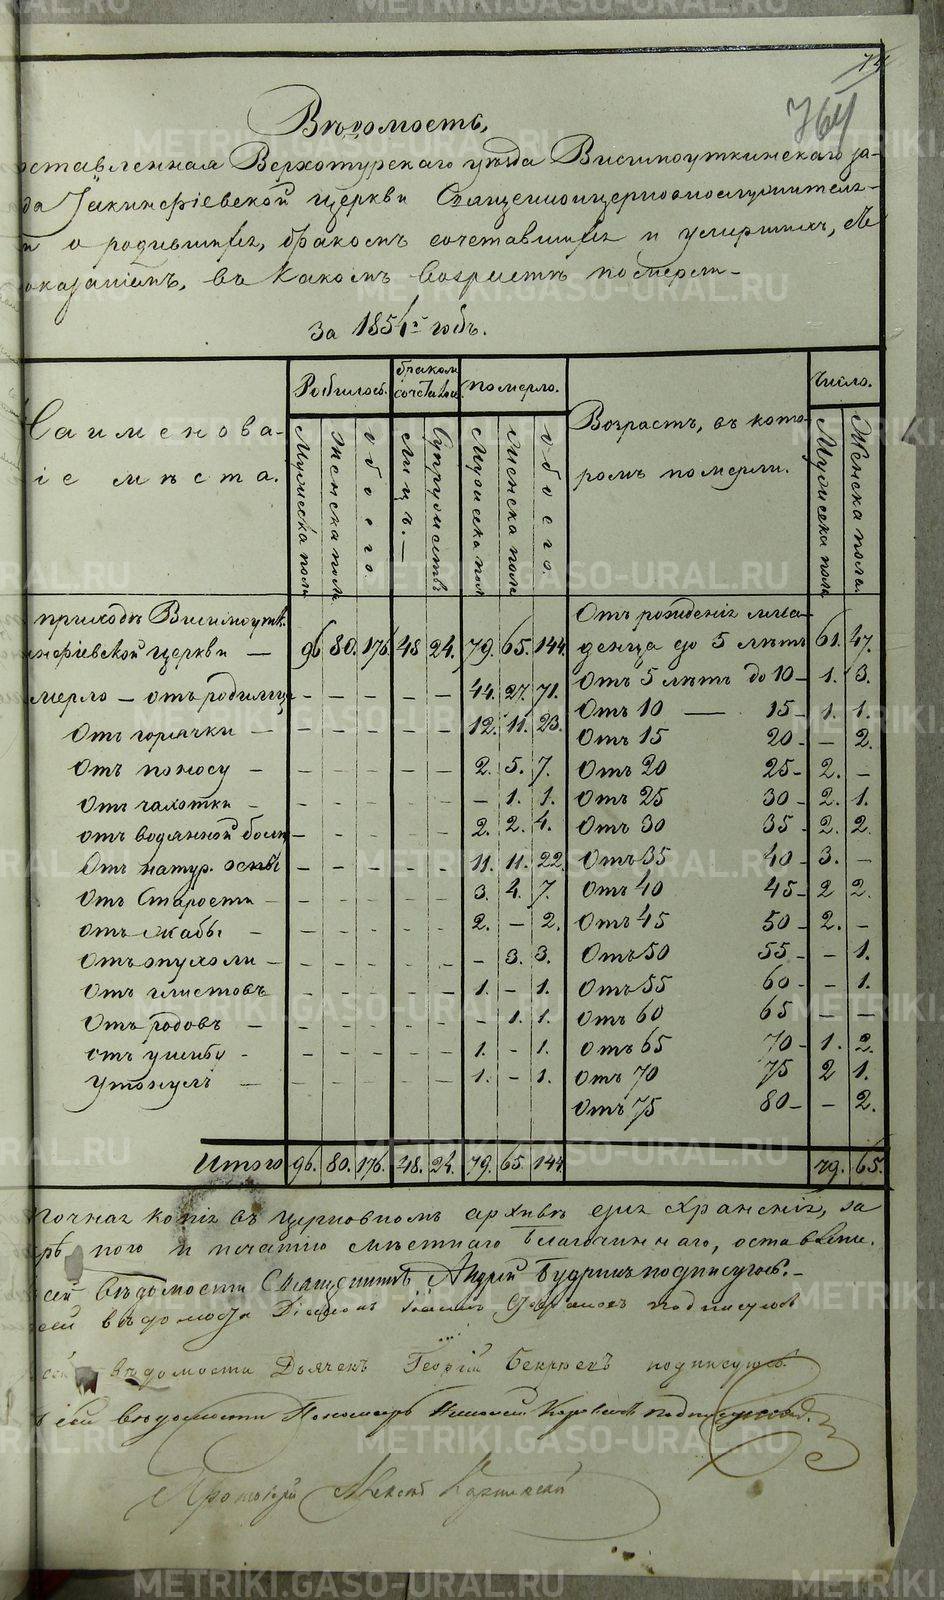 74
764
Вѣдомость,
оставленная Верхотурскаго уѣзда Висимоуткинскаго за-
да Іакинфіевской церкви Священноцерковнослужител-
й о родившихъ, бракомъ сочетавшихъ и умершихъ, съ
оказаніемъ, въ какомъ возрастѣ померли
за 1856й годъ.
Наименова-
іе мѣста.
Родилось.
бракомъ сочетались
померло.
Возрастъ, въ кото-
ромъ померли.
Число.
Мужеска пола
Женска пола
обоего.
Лицъ.
Супружествъ
Мужеска пола
Женска пола
обоего.
Мужеска пола
Женска пола.
приходѣ Висимоутк.
инфіевской церкви — 96 80. 176 48 24. 79. 65. 144. Отъ рожденія мла-
денца до 5 лѣтъ 61. 47.
мерло — отъ родимца - - - - - 44. 27. 71. Отъ 5 лѣтъ до 10 - 1. 3.
Отъ горячки - - - - - - 12. 11. 23. Отъ 10 — 15 - 1. 1.
Отъ 15 20 - - 2.
Отъ поносу - - - - - - 2. 5. 7. Отъ 20 25 - 2. -
Отъ чахотки - - - - - - - 1. 1. Отъ 25 30 - 2. 1.
отъ водянной болѣз - - - - - 2. 2. 4. Отъ 30 35 - 2. 2.
Отъ натур. оспы - - - - - 11. 11. 22. Отъ 35 40 - 3. -
Отъ Старости - - - - - - 3. 4. 7. Отъ 40 45 - 2 2.
отъ жабы - - - - - - 2. - 2. Отъ 45 50 - 2. -
Отъ опухоли - - - - - - - 3. 3. Отъ 50 55 - - 1.
Отъ глистовъ - - - - - 1. - 1. Отъ 55 60 - - 1.
Отъ родовъ - - - - - - - 1. 1. Отъ 60 65 - -
отъ ушибу - - - - - - 1. - 1. Отъ 65 70 - 1. 2.
Утонулъ — - - - - - 1. - 1. Отъ 70 75 2 1.
Отъ 75 80 - - 2.
Итого 96. 80. 176. 48. 24. 79. 65 144. 79. 65.
точная копія въ церковномъ архивѣ для храненія, за
и печатію мѣстнаго благочиннаго, оставлена.
сей вѣдомости Священникъ Андрей Будринъ подписуюсь.
сей вѣдомости Діаконъ подписуюсь
сей вѣдомости Дьячекъ Георгій подписуюсь.
сей вѣдомости Пономарь Николай подписуюсь.
Протоіерей
METRIKI.GASO-URAL.RU